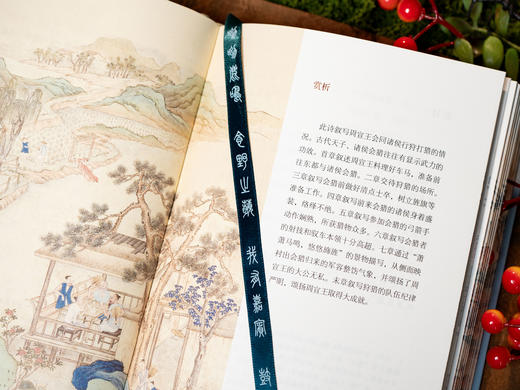 呦呦鹿鳴
食野之蘋
我有嘉賓
鼓
赏析
此诗叙写周宣王会同诸侯行狩打猎的情
况。古代天子、诸侯会猎往往有显示武力的
功效。首章叙述周宣王料理好车马，准备前
往东都与诸侯会猎。二章交待狩猎的场所。
三章叙写会猎前做好清点士卒，树立旌旗等
准备工作。四章叙写前来会猎的诸侯身着盛
装，络绎不绝。五章叙写参加会猎的弓箭手
动作娴熟，所获猎物众多。六章叙写会猎者
的射技和驭车本领十分高超。七章通过“萧
萧马鸣，悠悠旆旌”的景物描写，从侧面映
衬出会猎归来的军容整饬气象，并颂扬了周
宣王的大公无私。末章叙写狩猎的队伍纪律
严明，颂扬周宣王取得大成就。